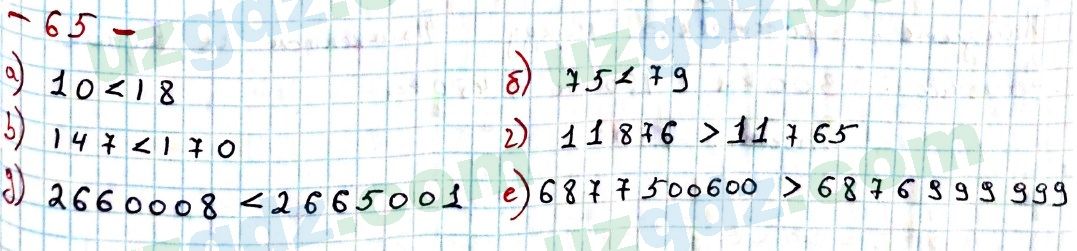 - 65 -
а) 10 < 18 б) 75 < 79
в) 147 < 170 г) 11876 > 11765
д) 2660008 < 2665001 е) 6877500600 > 6876999999
uzgdz.com